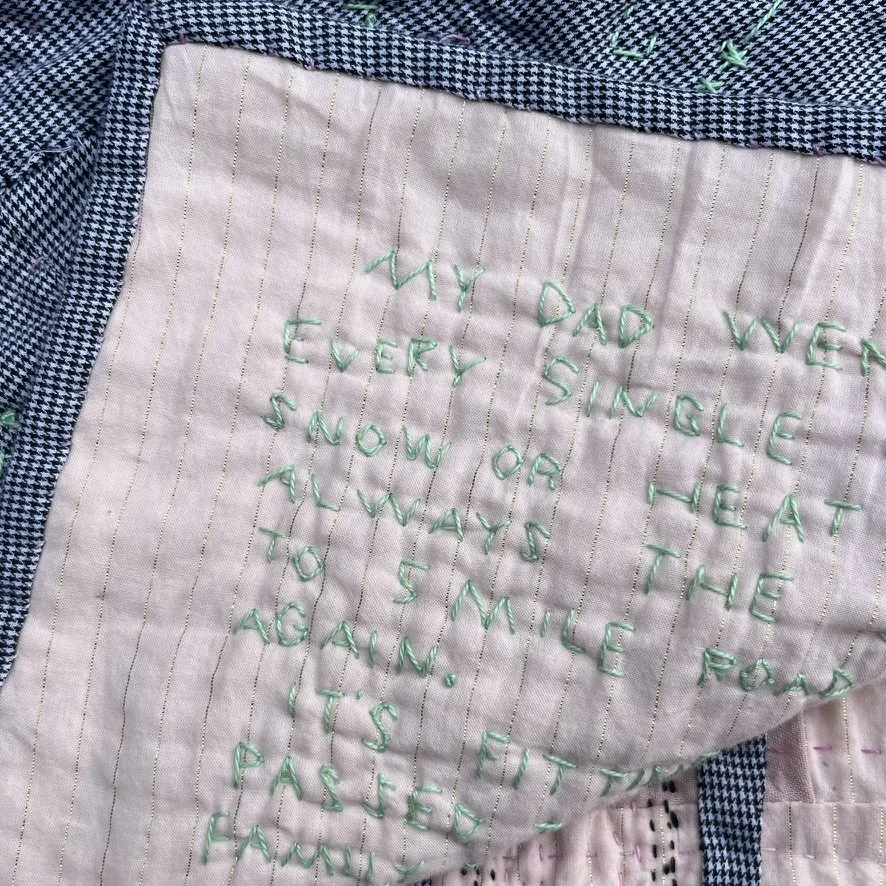 MY DAD WEN
EVERY SINGLE
SNOW OR HEAT
ALWAYS THE
TO 5 MILE ROAD
AGAIN.
IT'S FITTIN
PASSED
FAMILY